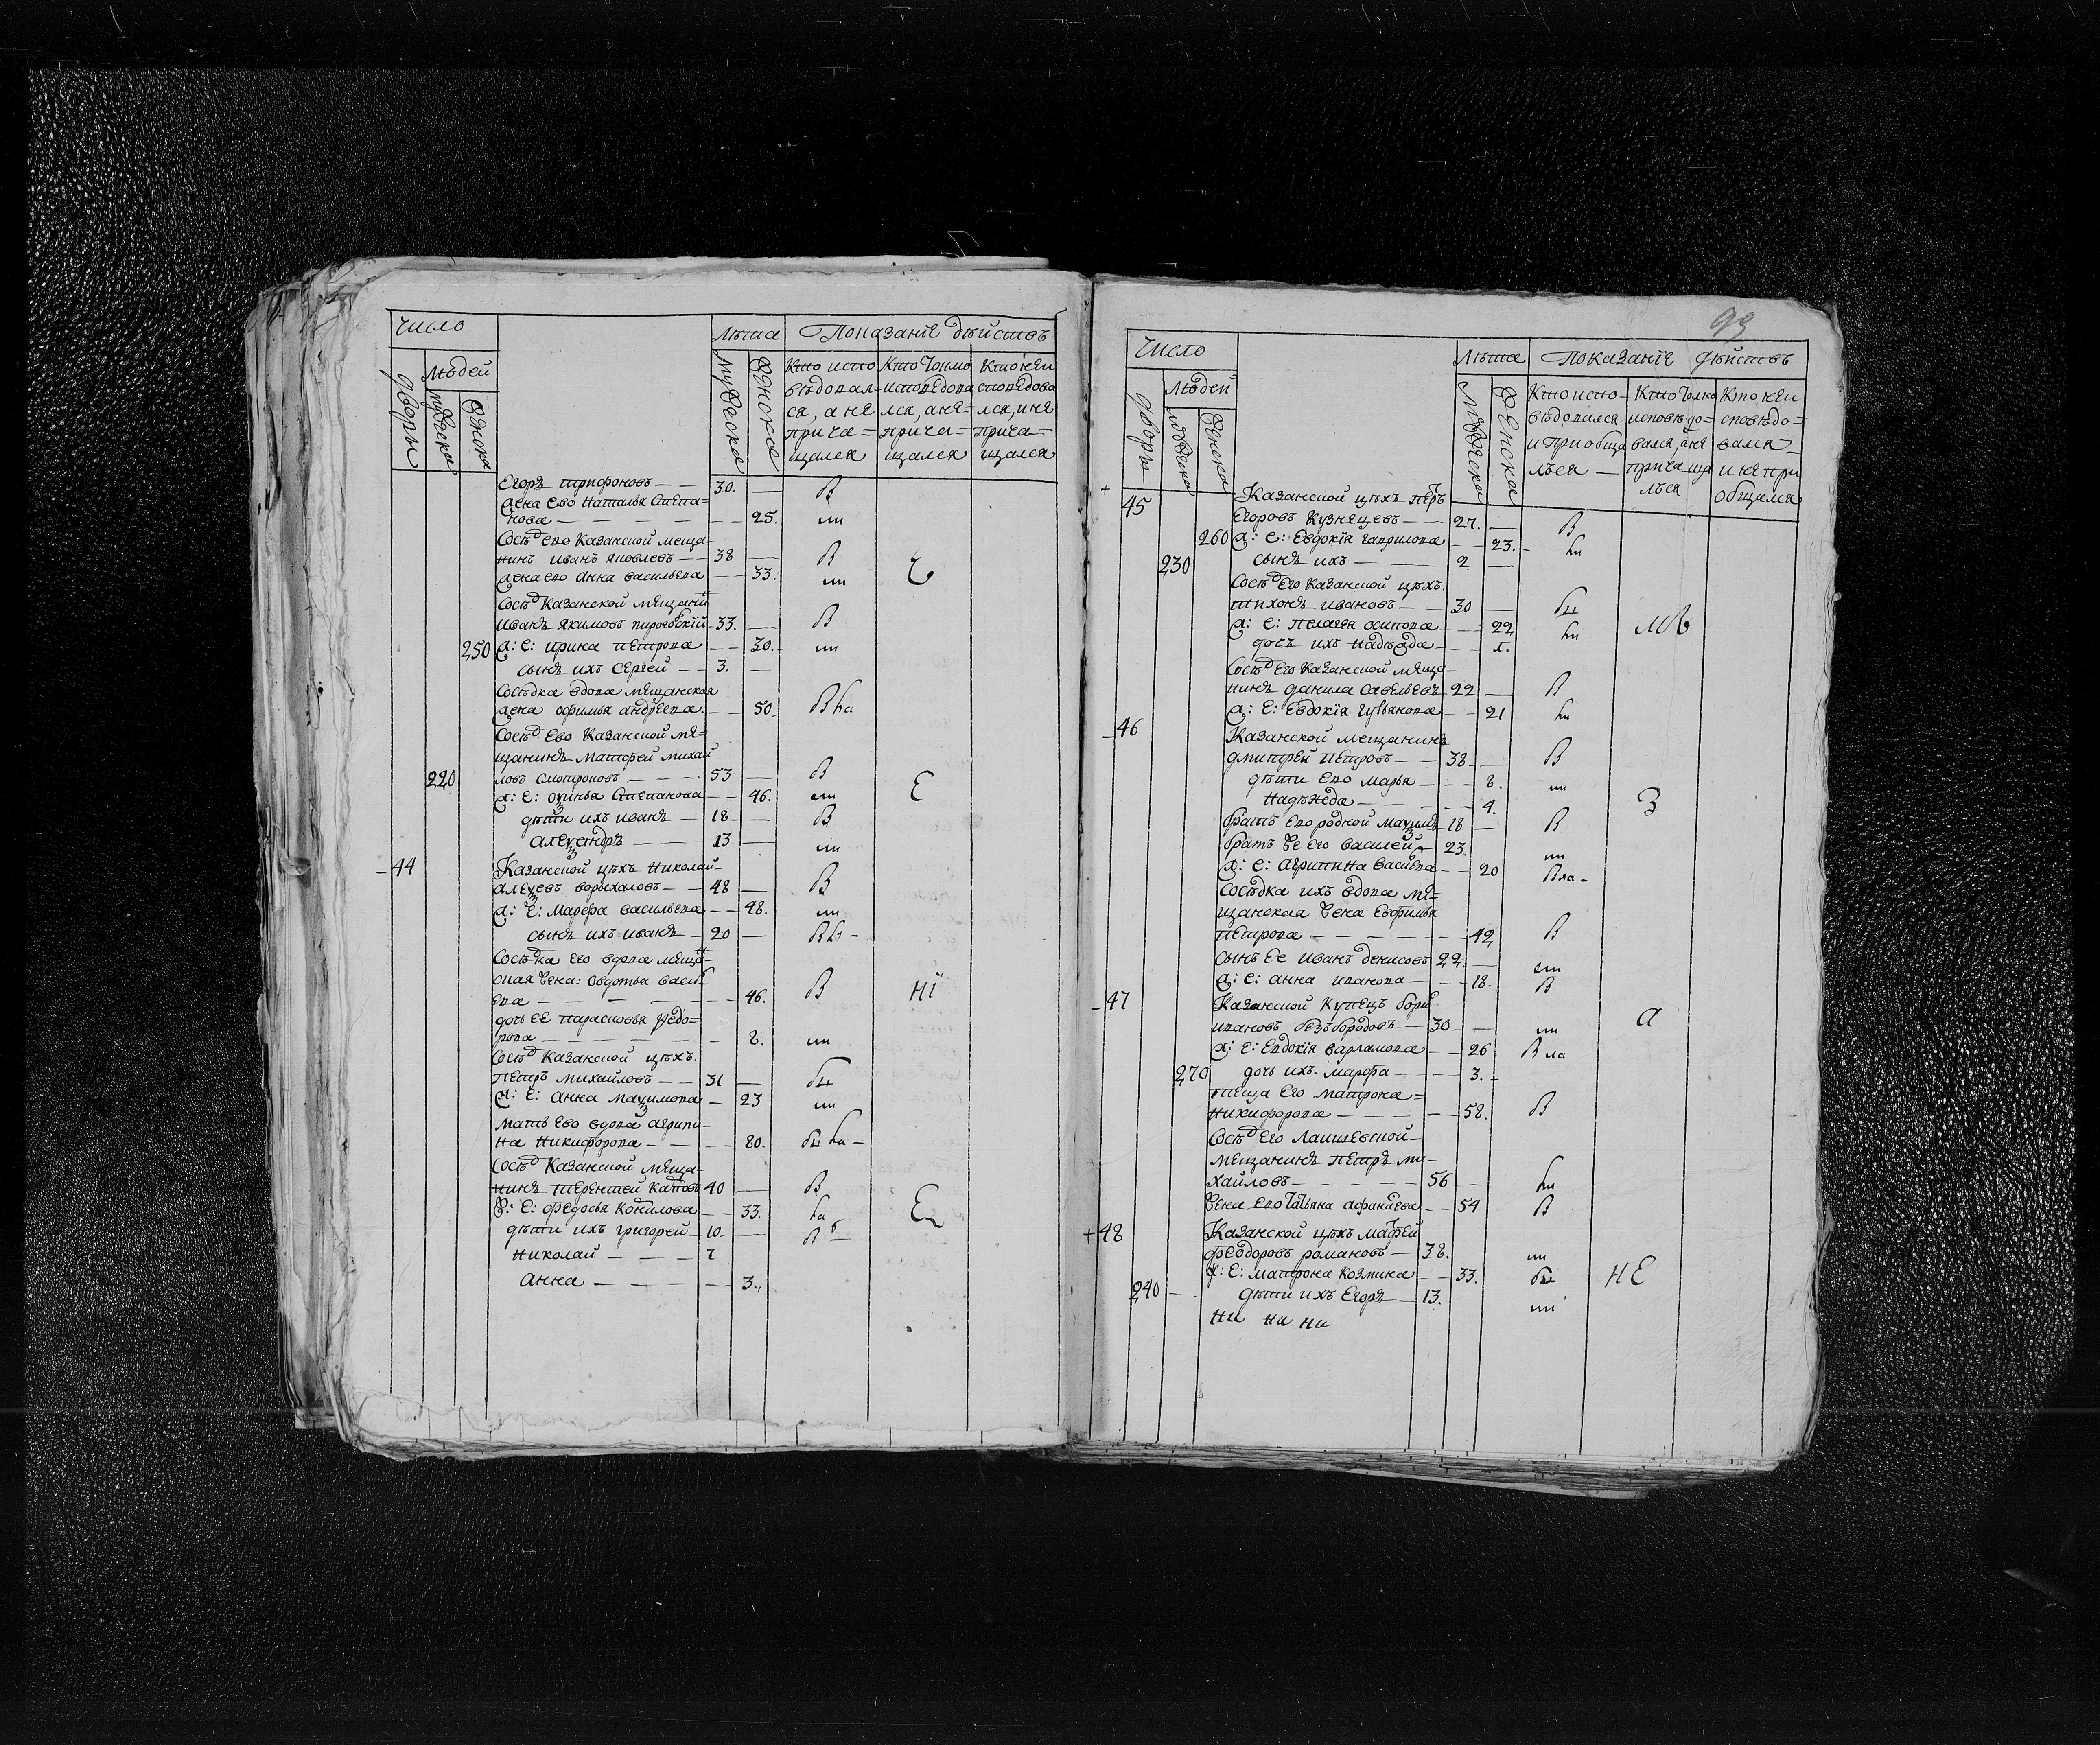 Число
Лѣта Показаніе дѣйствъ
дворы
Людей
мужеска
женска
мужеска
женска
Кто испо
вѣдовал
ся, а не
прича=
щался
Кто Токмо
исповѣдова
лся, а не=
прича=
щался
Кто не и
споведова
лся, и не
прича=
щался
Егоръ трифоновъ — — 30. — В
жена ево Наталья Степа=
нова — — — 25. ни
Сосѣд ево Казанской меща-
нинъ иванъ яковлевъ — — 38 — В
жена его Анна васильева — — 33. ни
Сосѣд Казанской мещани
иванъ якимовъ 33. — В
250 ж: е: ирина петрова — — 30. ни
сынъ ихъ Сергей — — 3. —
Сосѣдка вдова мещанская
жена офимья андреева — — 50. В
Сосѣд Ево Казанской ме=
щанинъ Матфей михай
220 ловъ — — — 53 — В Е
ж: е: Степанова — — 46. ни
дѣти ихъ иванъ — 18 — — В
алеѯандръ — — — 13 — ни
44 Казанской цѣхъ Николай
алеѯевъ — — 48 — В
ж: Е: Марфа васильева — — 48. ни
сынъ ихъ иванъ — 20 —
Сосѣдка его вдова меща
ская жена: овдотья васил
ева — — — 46. В НІ
дочь ее парасковья федо=
рова — — — 8. ни
Сосѣд Казанской цѣхъ.
Петръ михайловъ — — 31 —
ж: Е: анна маѯимова — 23 ни
мать Ево вдова агрипи-
на Никифорова — — 80.
Сосѣд Казанской меща-
нинъ терентей 40 — В
ж: Е: федосья — — 33.
дѣти ихъ григорей — 10 —
николай — — — 7
анна — — — 3.
93
Число
Лѣта Показаніе дѣйствъ
дворы
Людей
мужеска
женска
мужеска
женска
Кто испо-
вѣдовался
и приобща
лъся —
Кто Толко
исповѣдо=
вался, а не
причащя
лъся
Кто не и
сповѣдо=
вался=
и не при
общался
45 Казанской цѣхъ петръ
Егоровъ Кузнецовъ — — 27. — В
260 ж: е: Евдокія гаврилова — — 23.
230 сынъ ихъ — — 2 —
Сосѣд Его Казанской цѣхъ.
тихонъ ивановъ — — 30 —
ж: е: пелагея осипова — — 22
дочь ихъ надежда — — 1.
Сосѣд Его Казанской меща-
нинъ данила Савельевъ 22 — В
ж: Е: Евдокія — — 21
46 Казанской мещанинъ
дмитрей Петровъ — — 38. — В
дѣти его марья — — 8. ни
надежда — — — 4. З
братъ его родной маѯимъ 18 — В
братъ же его василей 23. ни
ж: е: агрипина васильева — — 20
Сосѣдка ихъ вдова ме=
щанская жена ефимья
петрова — — — 42 В
сынъ ее иванъ денисовъ 22. — ни
ж: е: анна иванова — — 18. В
47 Казанской Купецъ бори
ивановъ безбородовъ — 30 — — ни а
ж: е: Евдокія варламова — — 26
270 дочь ихъ марфа — — 3.
теща Его матрона=
никифорова — — — 58. В
Сосѣд Его Лаишевской
мещанинъ петръ ми-
хайловъ — — — 56 —
жена его Татьяна афанасева — — 54 В
48 Казанской цѣхъ матфей
феодоровъ романовъ — 38. ни
ж: Е: матрона козмина — — 33. НЕ
240 дѣти ихъ Егоръ — 13. ни
ни ни ни